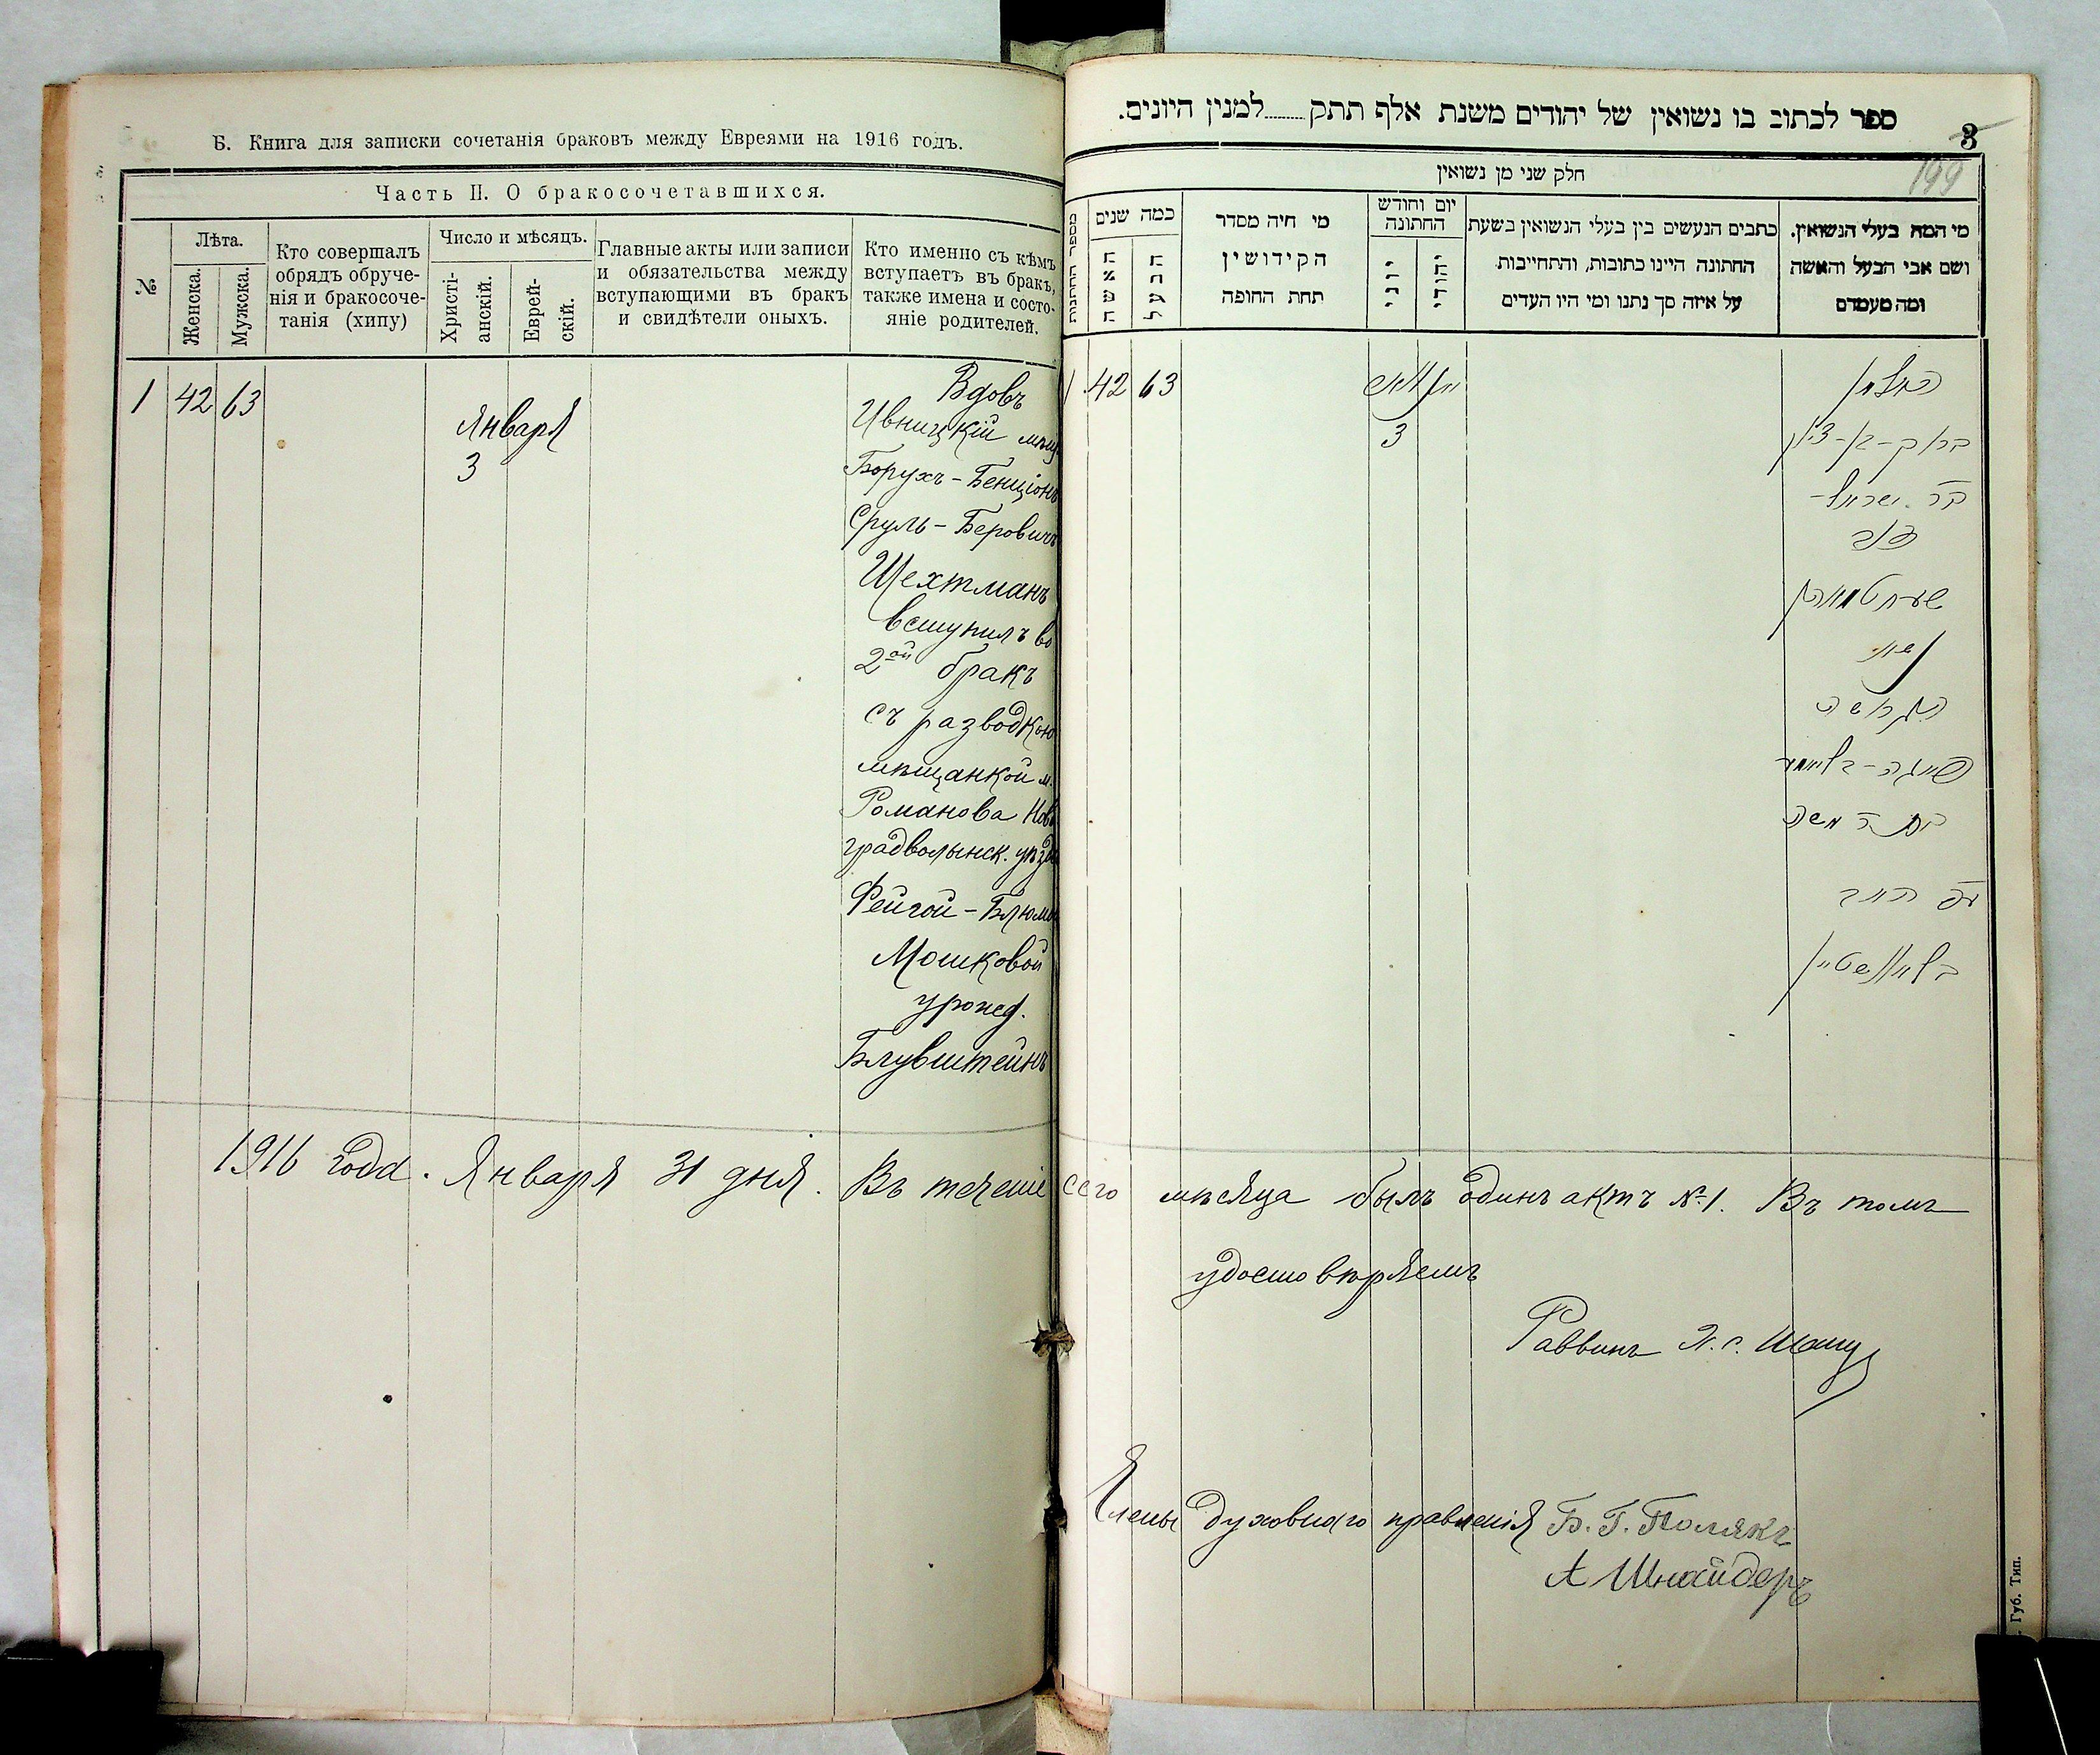 Б. Книга для записки сочетанія браковъ между Евреями на 1916 годъ.
Часть II. О бракосочетавшихся.
№
Лѣта.
Женска.
Мужска.
Кто совершалъ
обрядъ обруче-
нія и бракосоче-
танія (хипу)
Число и мѣсяцъ.
Христі-
анскій.
Еврей-
скій.
Главные акты или записи
и обязательства между
вступающими въ бракъ
и свидѣтели оныхъ.
Кто именно съ кѣмъ
вступаетъ въ бракъ,
также имена и состо-
яніе родителей.
1 42 63
Января
3
Вдовъ
Ивницкій мѣщ
Борухъ-Бенціонъ
Сруль-Беровичъ
Шехтманъ
вступилъ во
2ой бракъ
съ разводкою
мѣщанкой м.
Романова Нов
градволынск. уѣзда
Фейгой-Блюмой
Мошковой
урожд.
Блувштейнъ
ספר לכתוב בו נשואין של יהודים משנת אלף תתק........למנין היונים.
3
199
חלק שני מן נשואין
מספר החתונות
כמה שנים
האשה
הבעל
מי היה מסדר
הקידושין
תחת החופה
יום וחודש
החתונה
יוני
יהודי
כתבים הנעשים בין בעלי הנשואין בשעת
החתונה היינו כתובות, והתחייבות
על איזה סך נתנו ומי היו העדים
מי המה בעלי הנשואין.
ושם אבי הבעל והאשה
ומה מעמדם
1 42 63
ינואר
3
האלמן
ברוך-בן-ציון
בר ישראל-
בער
שעכטמאן
נשוי
הגרושה
פייגה-בליומה
בת ר משה
בלויוושטיין
1916 года. Января 31 дня. Въ теченіе сего мѣсяца былъ одинъ актъ №1. Въ томъ
удостовѣряемъ
Раввинъ
Члены духовнаго правленія Б. Г. Полякъ
А Шнайдеръ
Губ. Тип.